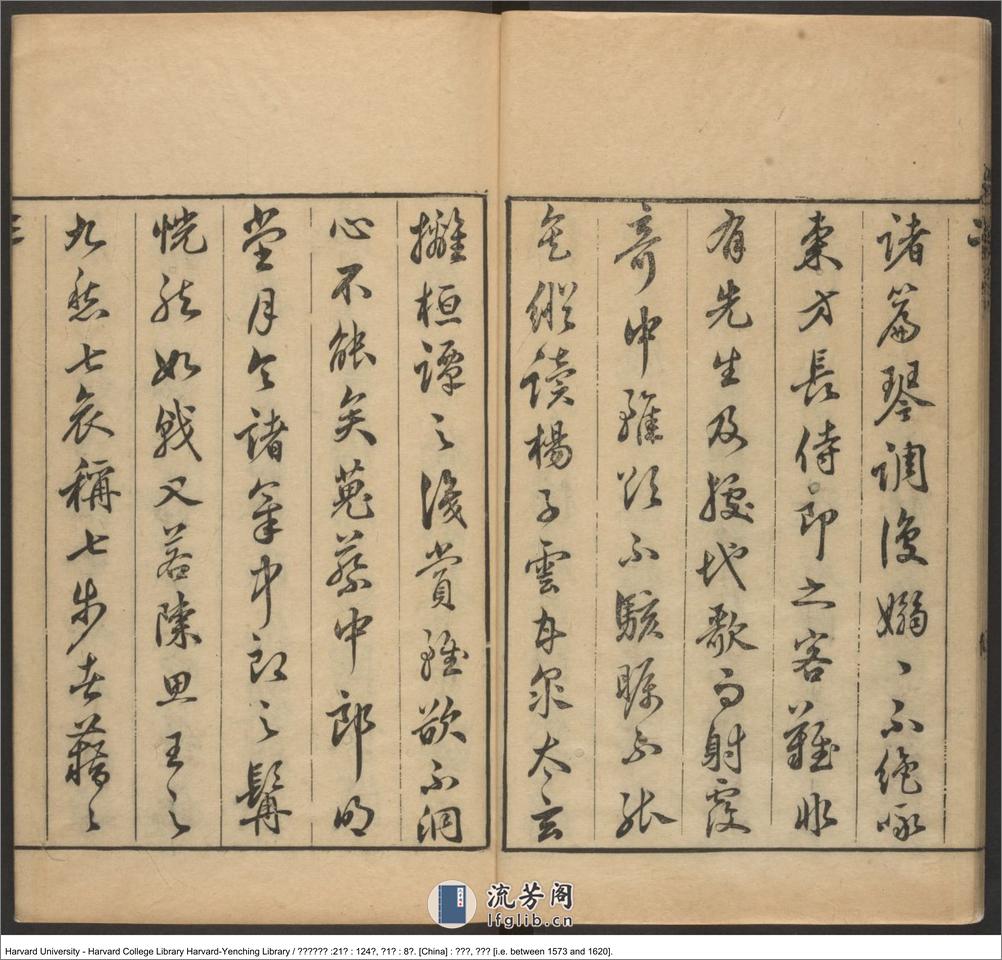 諸篇琴調復嫋〻不絶咏
東方長侍郎之客難非
有先生及據地歌而射覆
奇中雖欲不駭矚不能
矣縱讀楊子雲甘泉太玄
桓譚之後賞雖欲不洞
心不能矣蒐蔡中郎明
堂月令諸篇中郎之髯
恍然如戟又若陳思王之
九愁七哀稱七步者藉〻
流芳阁
lfglib.cn
Harvard University - Harvard College Library Harvard-Yenching Library / ?????? :21? : 124?, ?1? : 8?. [China] : ???, ??? [i.e. between 1573 and 1620].